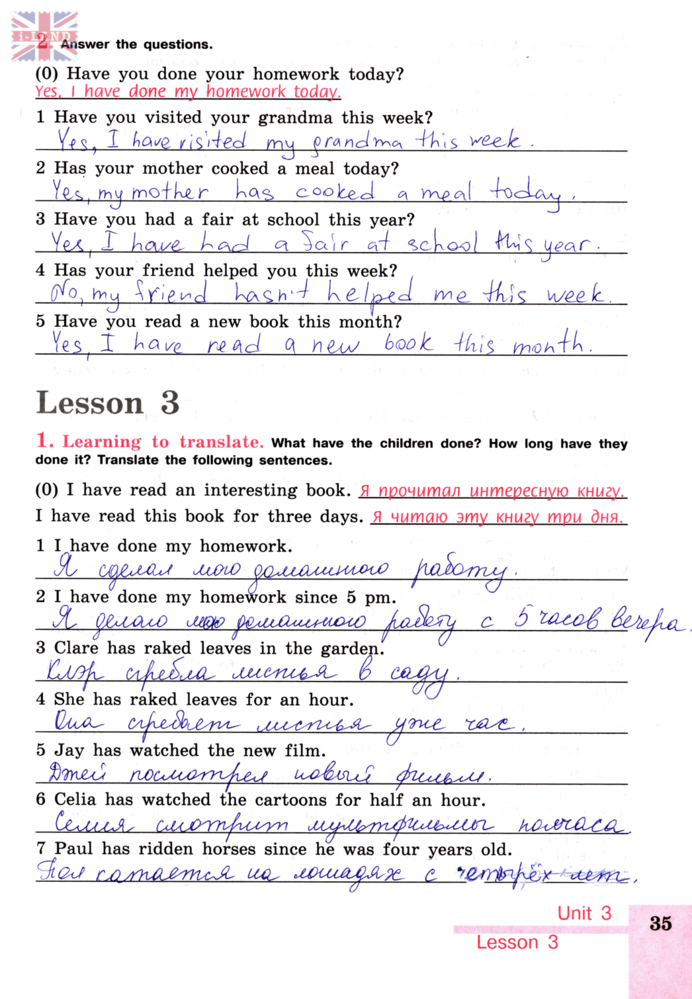 1-2.ИНФО
2. Answer the questions.
(0) Have you done your homework today?
Yes, I have done my homework today.
1 Have you visited your grandma this week?
Yes, I have visited my grandma this week.
2 Has your mother cooked a meal today?
Yes, my mother has cooked a meal today.
3 Have you had a fair at school this year?
Yes, I have had a fair at school this year.
4 Has your friend helped you this week?
No, my friend hasn't helped me this week.
5 Have you read a new book this month?
Yes, I have read a new book this month.
Lesson 3
1. Learning to translate. What have the children done? How long have they
done it? Translate the following sentences.
(0) I have read an interesting book. Я прочитал интересную книгу.
I have read this book for three days. Я читаю эту книгу три дня.
1 I have done my homework.
Я сделал мою домашнюю работу.
2 I have done my homework since 5 pm.
Я делаю мою домашнюю работу с 5 часов вечера.
3 Clare has raked leaves in the garden.
Клэр сгребла листья в саду.
4 She has raked leaves for an hour.
Она сгребает листья уже час.
5 Jay has watched the new film.
Джей посмотрел новый фильм.
6 Celia has watched the cartoons for half an hour.
Селия смотрит мультфильмы полчаса.
7 Paul has ridden horses since he was four years old.
Пол катается на лошадях с четырёх лет.
Unit 3
Lesson 3
35